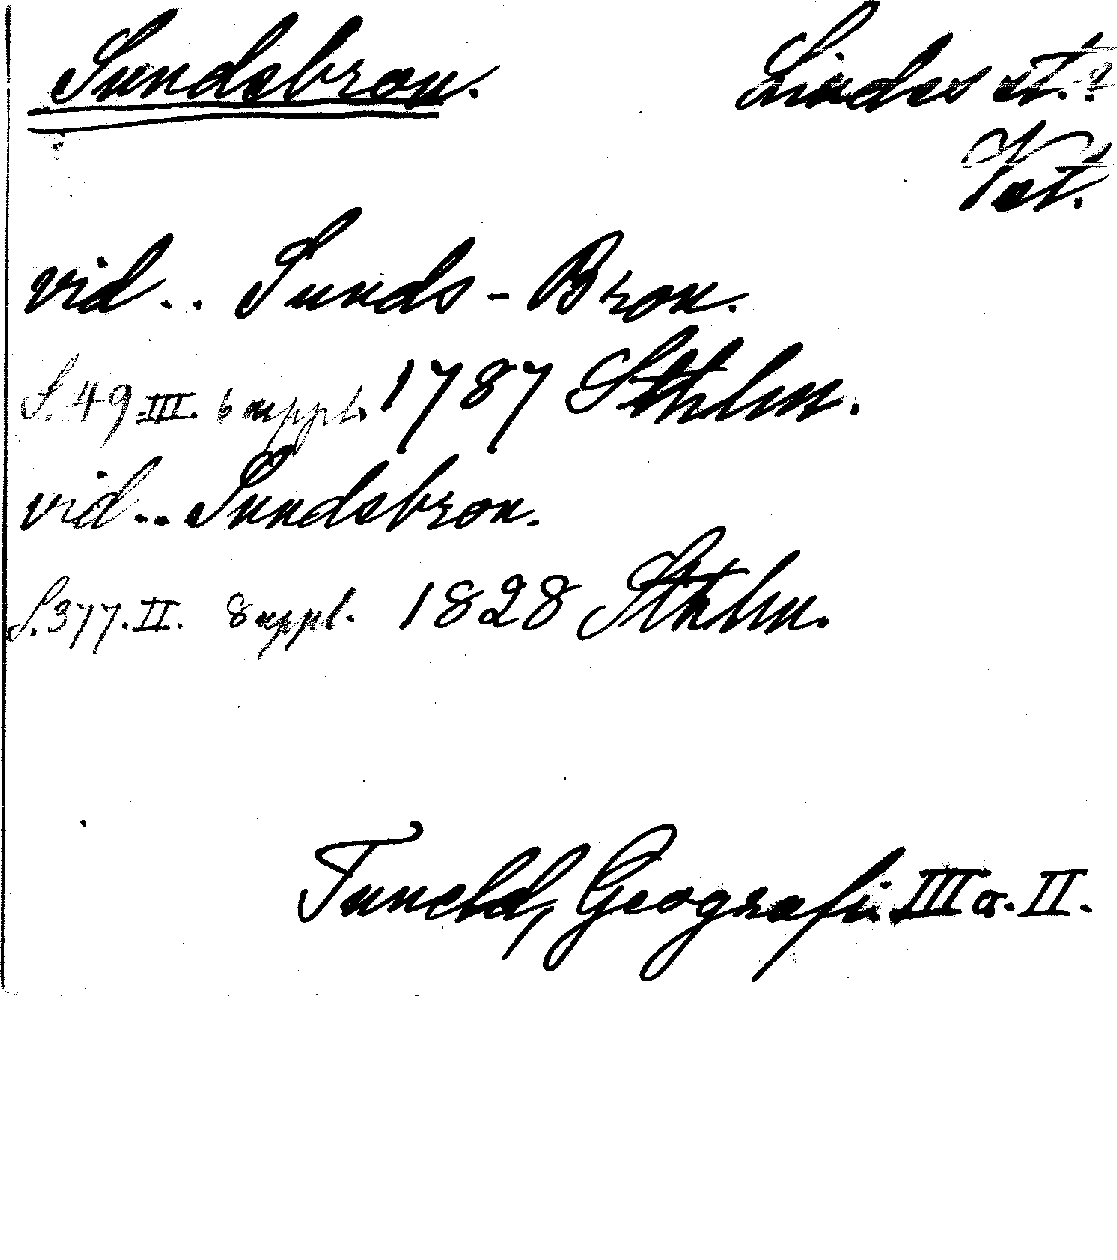 Sundsbron. Lindes st.?
Vst.
vid.. Sunds-Bron.
S. 49 III. 6 uppl. 1787 Sthlm.
vid... Sundsbron.
S. 377. II. 8 uppl. 1828 Sthlm.
Tuneld, Geografi III o. II.